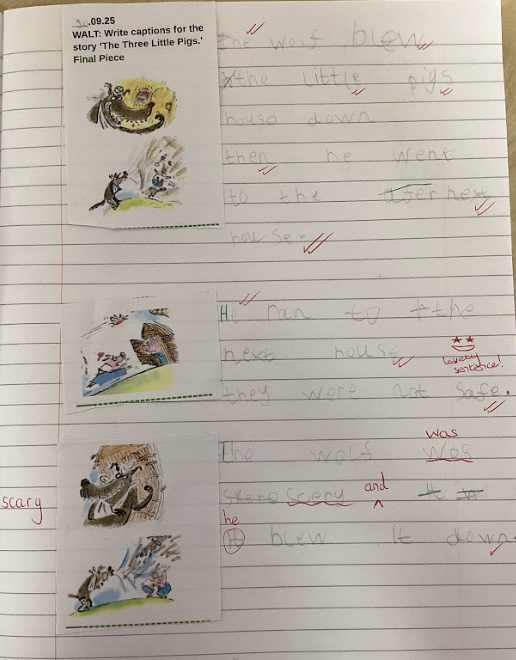 .09.25
WALT: Write captions for the
story 'The Three Little Pigs.'
Final Piece
the wolf blew
the little pigs
house down
then he went
to the next
house.
He ran to the
next house
lovely
sentence!
they were not safe.
was
the wolf wos
scary
Scery and it
he
It blew it down